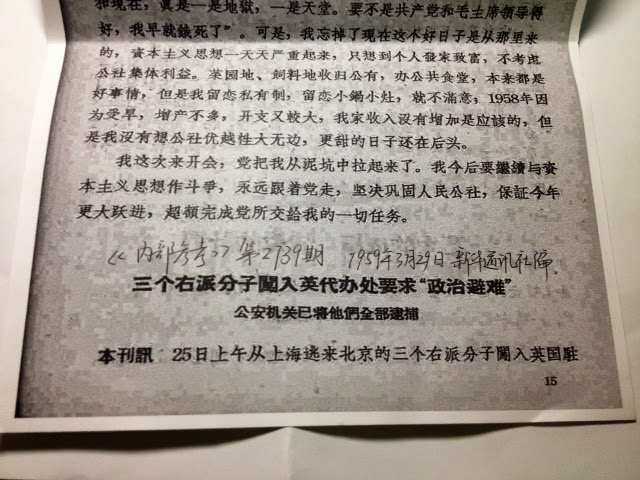 和现在，眞是一是地獄，一是天堂。要不是共产党和毛主席领导得
好，我早就餓死了”。可是，我忘掉了现在这个好日子是从那里来
的，資本主义思想一天天严重起来，只想到个人發家致富，不考虑
公社集体利益。菜园地、飼料地收归公有，办公共食堂，本来都是
好事情，但是我留恋私有制，留恋小鍋小灶，就不滿意，1958年因
为受旱，增产不多，开支又較大，我家收入沒有增加是应該的，但
是我沒有想公社优越性大无边，更甜的日子还在后头。
我这次来开会，党把我从泥坑中拉起来了。我今后要繼續与資
本主义思想作斗爭，永远跟着党走，坚决巩固人民公社，保証今年
更大跃进，超額完成党所交給我的一切任务。
《内部参考》第2739期 1959年3月29日 新华通讯社编
三个右派分子闖入英代办处要求“政治避难”
公安机关已将他們全部逮捕
本刊訊 25日上午从上海逃来北京的三个右派分子闖入英国駐
15